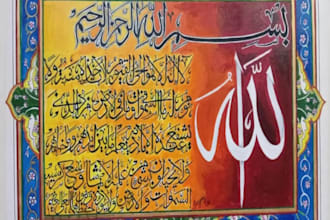 بسم الله الرحمن الرحيم
الله
لا اله الا هو الحي القيوم لا تأخذه سنة ولا
نوم له ما في السموات وما في الارض من ذا الذي
يشفع عنده الا باذنه يعلم ما بين ايديهم وما
ولا يحيطون بشيء من علمه الا بما شاء وسع كرسيه
السموات والارض ولا